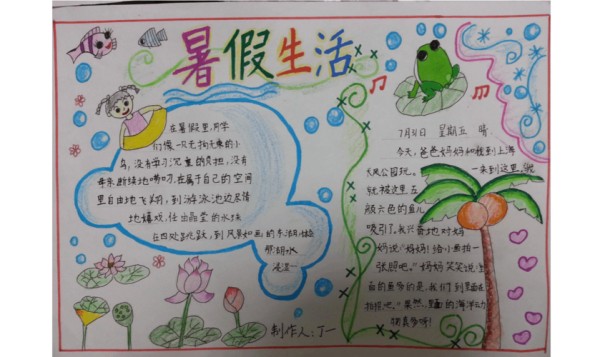 暑假生活
在暑假里,同学
们像一只无拘无束的小
鸟,没有学习沉重的负担,没有
母亲断续地唠叨,在属于自己的空间
里自由地飞翔,到游泳池边尽情
地嬉戏,任由晶莹的水珠
在四处乱跳,到风景如画的东湖
感湖水
7月4日 星期五 晴
今天,爸爸妈妈和我到上海
大风公园玩。一来到这里,我
就被这里
五颜六色的鱼儿
吸引了。我兴奋地对妈
妈说:“妈妈!给小鱼拍一
张照吧。”妈妈笑笑说:
有的鱼多的是,我们到里面在
拍拍吧。”果然,里面的海洋动
物真多呀!
制作人:丁一